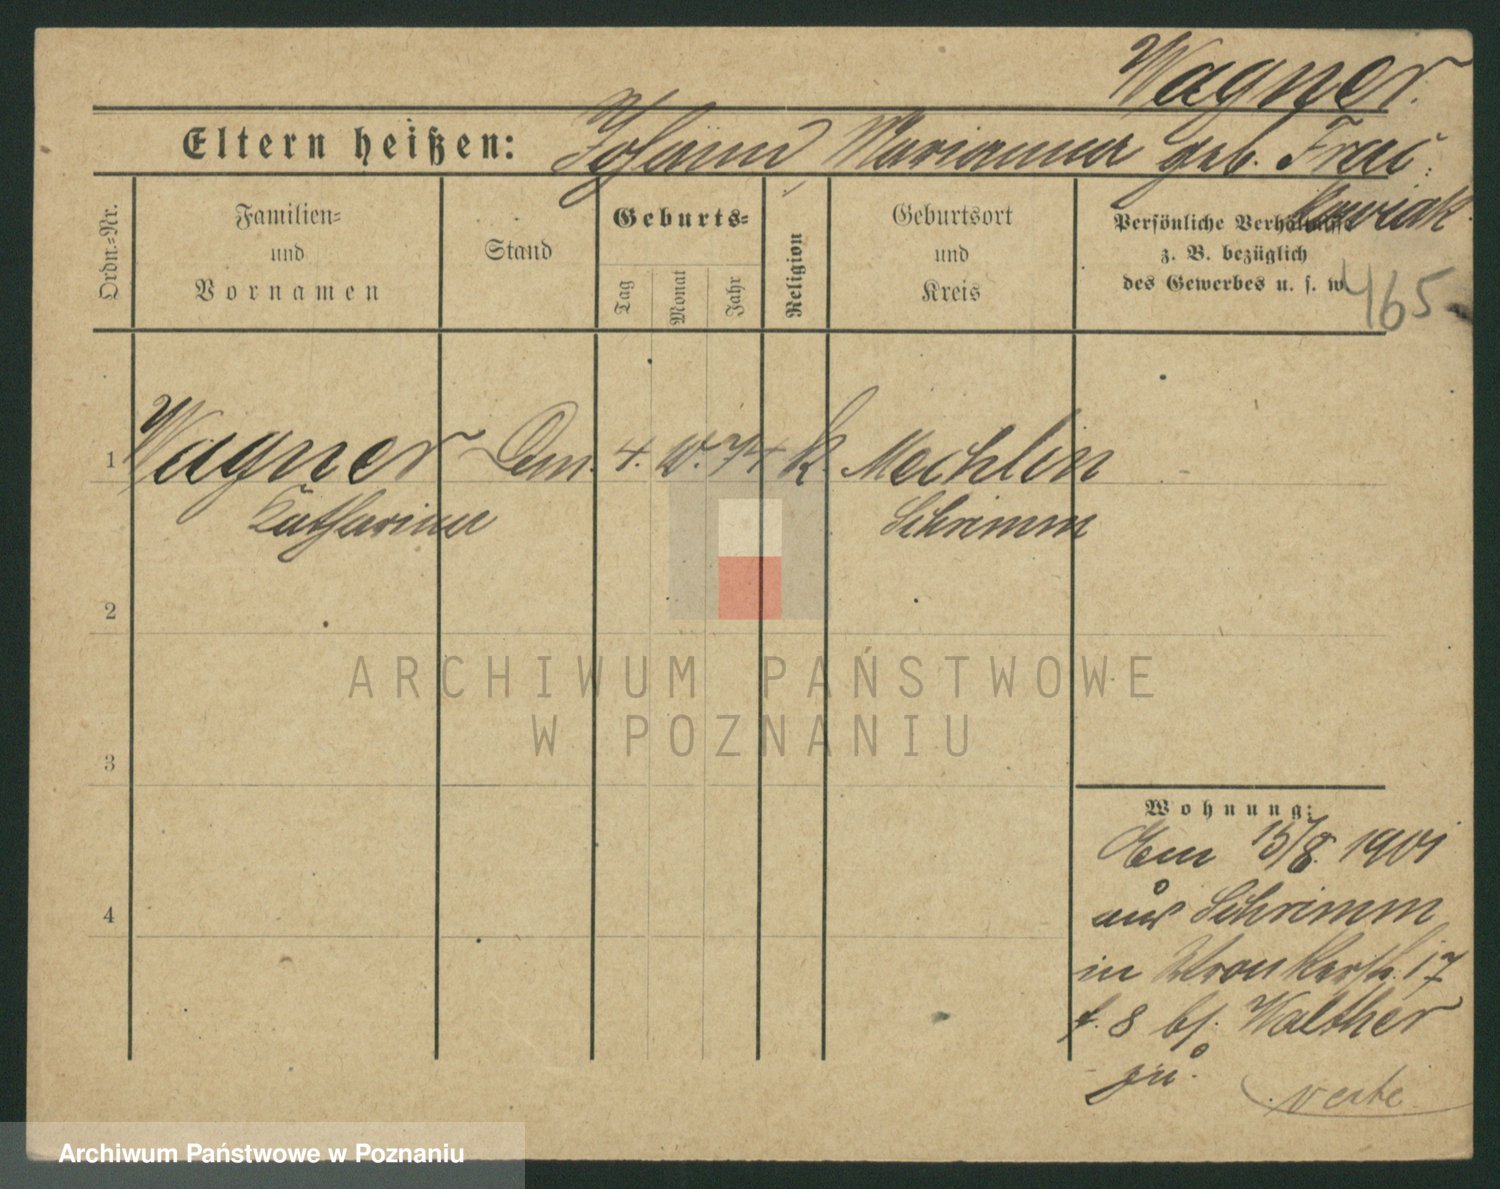 Wagner.
Eltern heißen: Johann Marianna geb. Frac-
kowiak.
Ordn.=Nr.
Familien=
und
Vornamen
Stand
Geburts=
Tag
Monat
Jahr
Religion
Geburtsort
und
Kreis
Persönliche Verhältnisse
z. B. bezüglich
des Gewerbes u. s. w.
465
1 Wagner 4. 10. 74 k. Mechlin
Katharina Schrimm
2
ARCHIWUM PAŃSTWOWE
W POZNANIU
3
4
Wohnung:
Am 15/8. 1901
aus Schrimm
in Wronkerstr. 17
8 bf. Walther
zu.
verte.
Archiwum Państwowe w Poznaniu